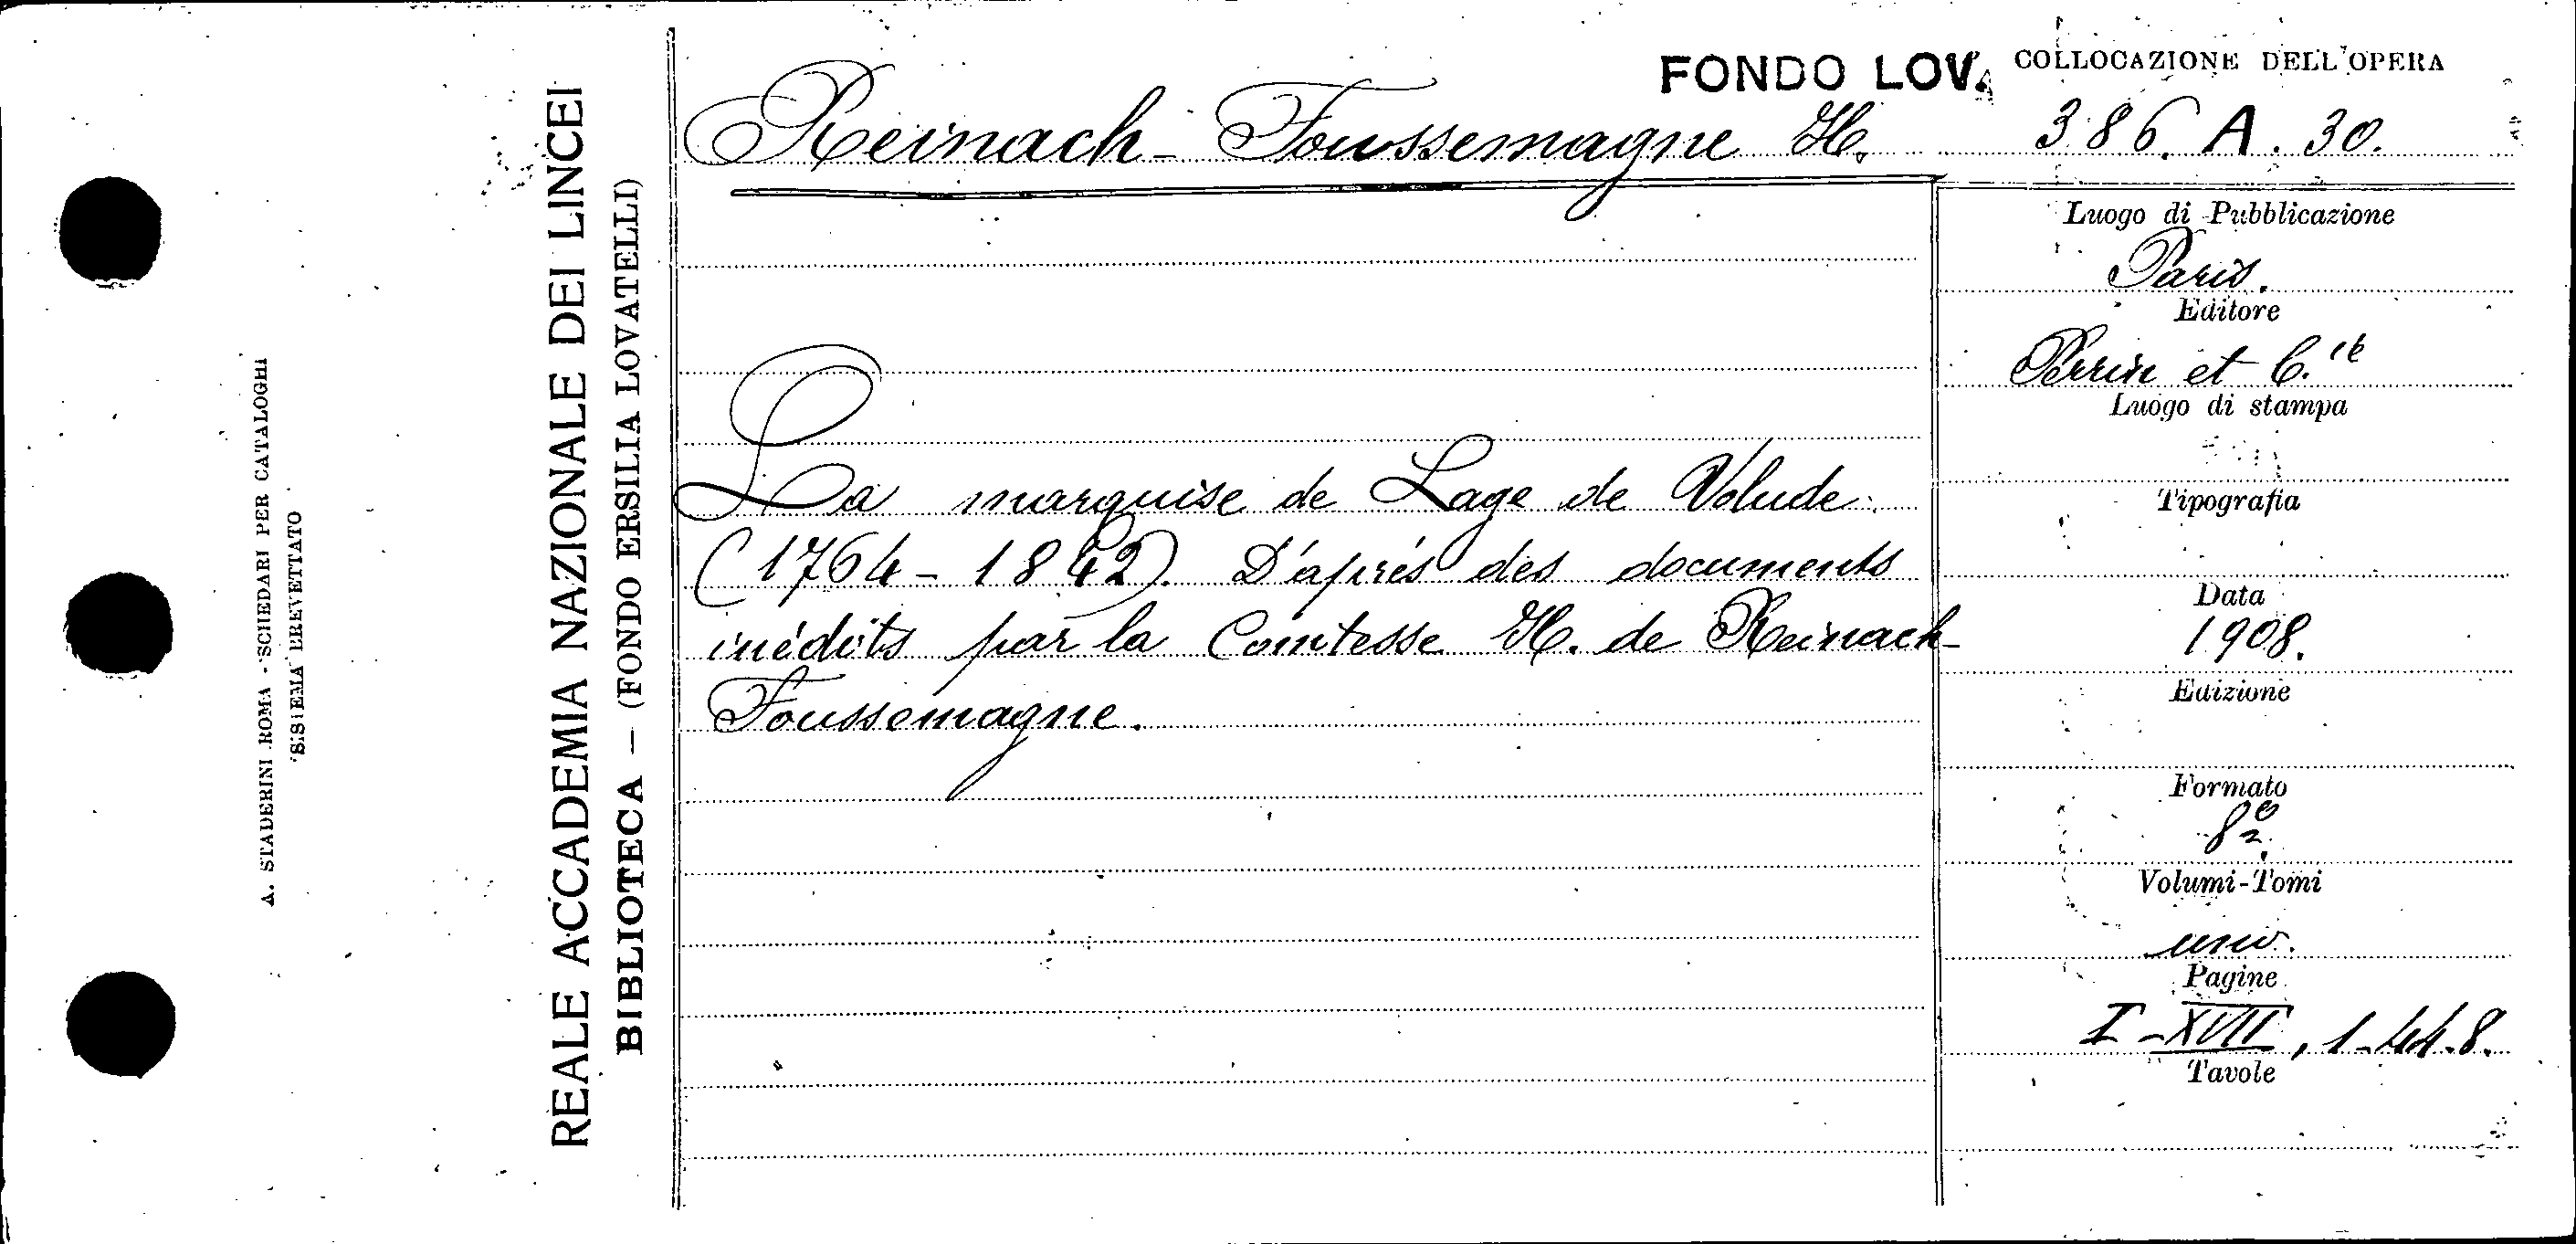 FONDO LOV.
COLLOCAZIONE DELL'OPERA
Reinach-Foussemagne H.
386. A. 30.
Luogo di Pubblicazione
Paris.
Editore
Perrin et C.ie
Luogo di stampa
Tipografia
Data
1908.
Edizione
Formato
8º
Volumi-Tomi
uno.
Pagine
I-XVII, 1-448.
Tavole
La marquise de Lage de Volude
(1764-1842). D'après des documents
inédits par la Comtesse H. de Reinach-
Foussemagne.
REALE ACCADEMIA NAZIONALE DEI LINCEI
BIBLIOTECA — (FONDO ERSILIA LOVATELLI)
A. STADERINI ROMA - SCHEDARI PER CATALOGHI
SISTEMA BREVETTATO